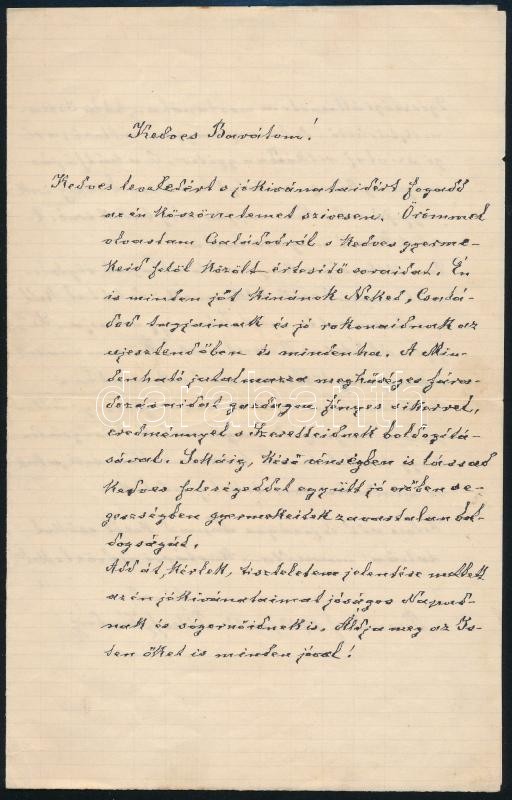 Kedves Barátom!
Kedves leveledért s jókivánataidért fogadd
az én köszönetemet szivesen. Örömmel
olvastam Családodról s kedves gyerme-
keid felől közölt értesitő soraidat. Én
is minden jót kivánok Neked, Csalá-
dod tagjainak és jó rokonaidnak az
ujesztendőben és mindenha. A Min-
denható jutalmazza meg hűséges fára-
dozásaidat gazdagon fényes sikerrel,
eredménnyel s Szeretteidnek boldogitá-
sával. Sokáig, késő vénségben is lássad
kedves feleségeddel együtt jó erőben se-
gességben gyermekeitek zavartalan bol-
dogságát.
Add át, kérlek, tiszteletem jelentése mellett
az én jókivánataimat jóságos Napad-
nak és sógornőidnek is. Áldja meg az Is-
ten őket is minden jóval!
darabanth